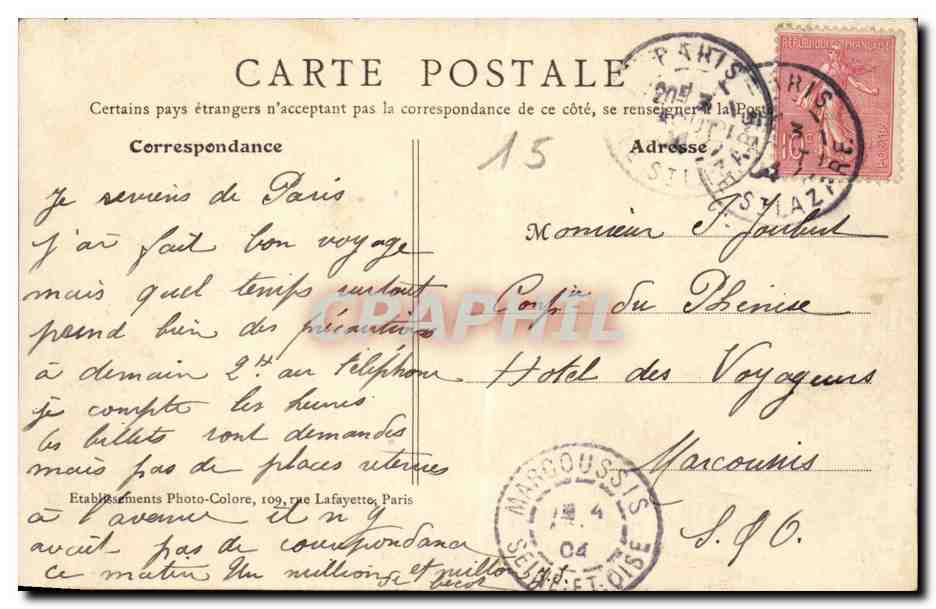 CARTE POSTALE
Certains pays étrangers n'acceptant pas la correspondance de ce côté, se renseigner à la Poste
Correspondance
Adresse
15
RÉPUBLIQUE FRANÇAISE
10c
PARIS
PARIS
ST LAZARE
Je reviens de Paris
j'ai fait bon voyage
mais quel temps surtout
prend bien des précautions
à demain 2h au téléphone
je compte les heures
les billets sont demandes
mais pas de places retenues
à l'avance il n y
avait pas de correspondance
ce matin Un million et million
de
Monsieur J. Joubert
du Phénix
Hotel des Voyageurs
Marcoussis
S. & O.
Etablissements Photo-Colore, 109, rue Lafayette, Paris
MARCOUSSIS
4
04
SEINE-ET-OISE
CPAPHIL